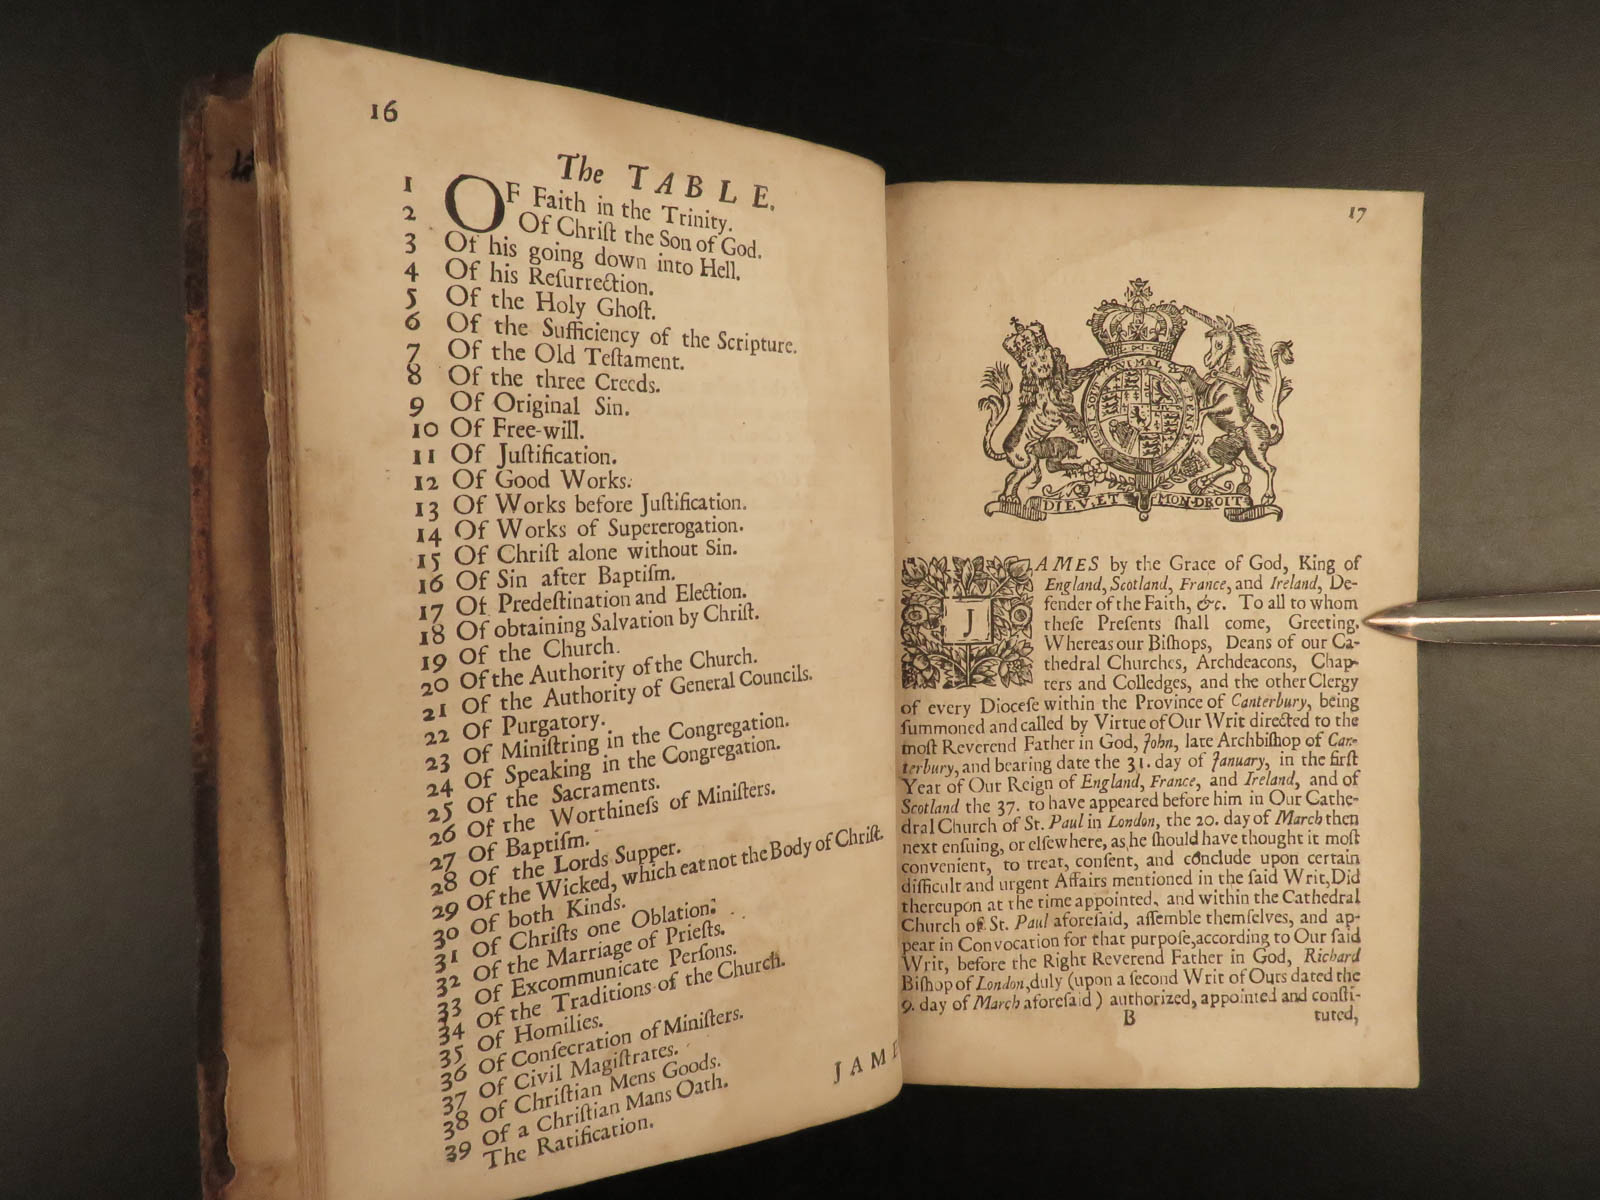 16
The TABLE.
1 OF Faith in the Trinity.
2 Of Chriſt the Son of God.
3 Of his going down into Hell.
4 Of his Reſurrection.
5 Of the Holy Ghoſt.
6 Of the Sufficiency of the Scripture.
7 Of the Old Teſtament.
8 Of the three Creeds.
9 Of Original Sin.
10 Of Free-will.
11 Of Juſtification.
12 Of Good Works.
13 Of Works before Juſtification.
14 Of Works of Supererogation.
15 Of Chriſt alone without Sin.
16 Of Sin after Baptiſm.
17 Of Predeſtination and Election.
18 Of obtaining Salvation by Chriſt.
19 Of the Church.
20 Of the Authority of the Church.
21 Of the Authority of General Councils.
22 Of Purgatory.
23 Of Miniſtring in the Congregation.
24 Of Speaking in the Congregation.
25 Of the Sacraments.
26 Of the Worthineſs of Miniſters.
27 Of Baptiſm.
28 Of the Lords Supper.
29 Of the Wicked, which eat not the Body of Chriſt.
30 Of both Kinds.
31 Of Chriſts one Oblation.
32 Of the Marriage of Prieſts.
33 Of Excommunicate Perſons.
34 Of the Traditions of the Church.
35 Of Homilies.
36 Of Conſecration of Miniſters.
37 Of Civil Magiſtrates.
38 Of Chriſtian Mens Goods.
39 Of a Chriſtian Mans Oath.
The Ratification.
JAME
17
DIEV·ET MON·DROIT
JAMES by the Grace of God, King of
England, Scotland, France, and Ireland, De-
fender of the Faith, &c. To all to whom
theſe Preſents ſhall come, Greeting.
Whereas our Biſhops, Deans of our Ca-
thedral Churches, Archdeacons, Chap-
ters and Colledges, and the other Clergy
of every Dioceſe within the Province of Canterbury, being
ſummoned and called by Virtue of Our Writ directed to the
moſt Reverend Father in God, John, late Archbiſhop of Can-
terbury, and bearing date the 31. day of January, in the firſt
Year of Our Reign of England, France, and Ireland, and of
Scotland the 37. to have appeared before him in Our Cathe-
dral Church of St. Paul in London, the 20. day of March then
next enſuing, or elſewhere, as he ſhould have thought it moſt
convenient, to treat, conſent, and conclude upon certain
difficult and urgent Affairs mentioned in the ſaid Writ, Did
thereupon at the time appointed, and within the Cathedral
Church of St. Paul aforeſaid, aſſemble themſelves, and ap-
pear in Convocation for that purpoſe, according to Our ſaid
Writ, before the Right Reverend Father in God, Richard
Biſhop of London, duly (upon a ſecond Writ of Ours dated the
9. day of March aforeſaid) authorized, appointed and conſti-
B tuted,